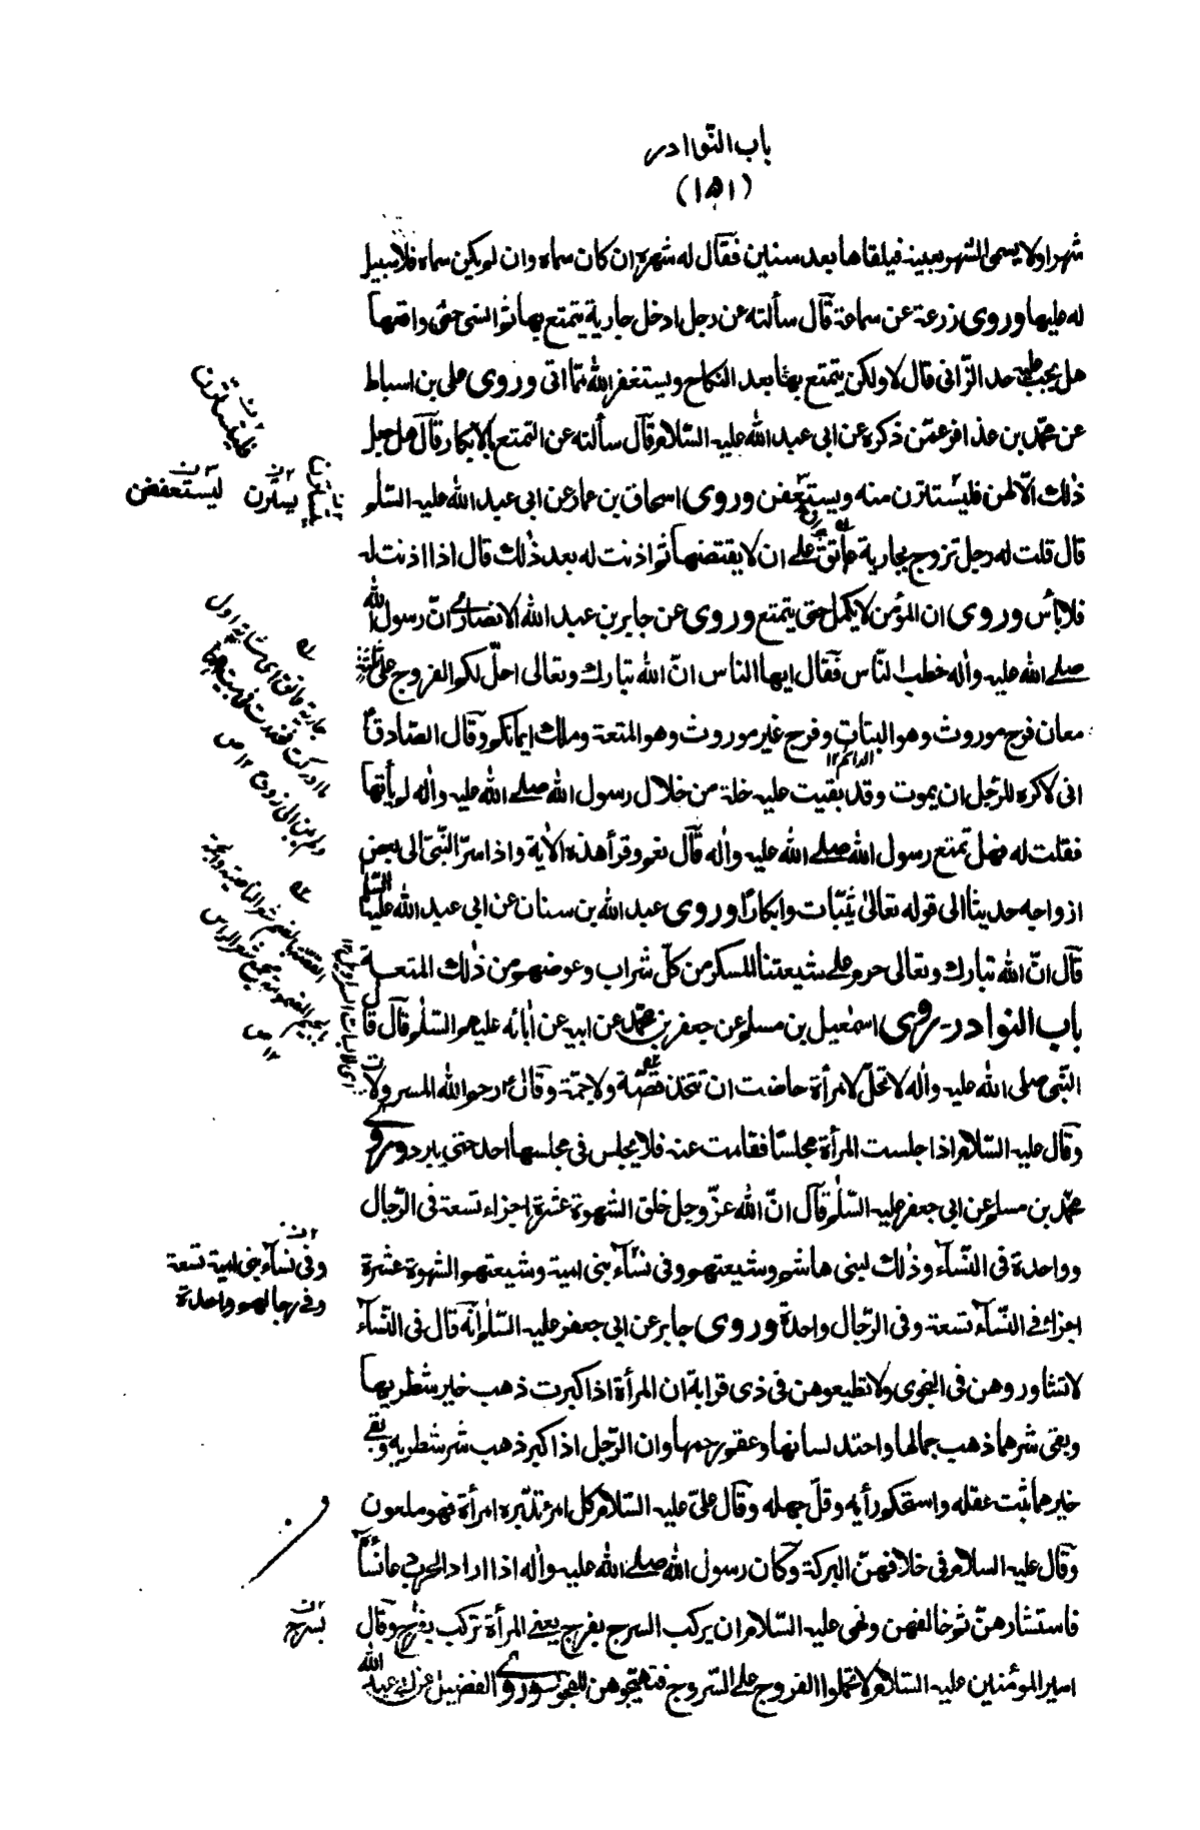 باب النوادر
(١٥١)
شهرا ولا يسمى الشهر بعينه فيلقاها بعد سنين فقال له شهره ان كان سماه وان لم يكن سماه فلا سبيل
له عليها وروى زرعة عن سماعة قال سألته عن رجل ادخل جارية يتمتع بها ثم انسى حتى واقعها
هل يجب عليه حد الزانى قال لا ولكن يتمتع بها بعد النكاح ويستغفر الله مما اتى وروى على بن اسباط
عن محمد بن عذافر عمن ذكره عن ابى عبد الله عليه السلام قال سألته عن التمتع بالابكار قال هل جعل
ذلك الا لهن فليستترن منه ويستعففن وروى اسحاق بن عمار عن ابى عبد الله عليه السلم
قال قلت له رجل تزوج بجارية عاتق على ان لا يقتضها ثم اذنت له بعد ذلك قال اذا اذنت له
فلا بأس وروى ان المؤمن لا يكمل حتى يتمتع وروى عن جابر بن عبد الله الانصارى ان رسول الله
صلى الله عليه واله خطب الناس فقال ايها الناس ان الله تبارك وتعالى احل لكم الفروج على ثلثة
معان فرج موروث وهو البتات وفرج غير موروث وهو المتعة وملك ايمانكم وقال الصادق
الدائم ١٢
انى لاكره للرجل ان يموت وقد بقيت عليه خلة من خلال رسول الله صلى الله عليه واله لم يأتها
فقلت له فهل تمتع رسول الله صلى الله عليه واله قال نعم وقرأ هذه الاية واذ اسر النبى الى بعض
ازواجه حديثا الى قوله تعالى ثيبات وابكارا وروى عبد الله بن سنان عن ابى عبد الله عليه السلم
قال ان الله تبارك وتعالى حرم على شيعتنا المسكر من كل شراب وعوضهم من ذلك المتعة
باب النوادر - روى اسمعيل بن مسلم عن جعفر بن محمد عن ابيه عن ابائه عليهم السلم قال قال
النبى صلى الله عليه واله لا تحل لامرأة حاضت ان تتخذ قصة ولا جمة وقال ع رحم الله المسرولات
وقال عليه السلام اذا جلست المرأة مجلسا فقامت عنه فلا يجلس فى مجلسها احد حتى يبرد وروى
محمد بن مسلم عن ابى جعفر عليه السلم قال ان الله عز وجل خلق الشهوة عشرة اجزاء تسعة فى الرجال
وواحدة فى النساء وذلك لبنى هاشم وشيعتهم وفى نساء بنى امية وشيعتهم الشهوة عشرة
اجزاء فى النساء تسعة وفى الرجال واحدة وروى جابر عن ابى جعفر عليه السلم انه قال فى النساء
لا تشاوروهن فى النجوى ولا تطيعوهن فى ذى قرابة ان المرأة اذا كبرت ذهب خير شطريها
وبقى شرهما ذهب جمالها واحتد لسانها وعقم رحمها وان الرجل اذا كبر ذهب شر شطريه وبقى
خيرهما ثبت عقله واستحكم رأيه وقل جهله وقال على عليه السلام كل امرء تدبره امرأة فهو ملعون
وقال عليه السلام فى خلافهن البركة وكان رسول الله صلى الله عليه واله اذا اراد الحرب دعا نساءه
فاستشارهن ثم خالفهن ونهى عليه السلام ان يركب السرج بفرج يعنى المرأة تركب بفرج وقال
امير المؤمنين عليه السلام لا تحملوا الفروج على السروج فتهيجوهن للفجور وروى الفضيل عن ابى عبد الله
يستترن
ليستعففن
اى لابسات السراويل ١٢
وفى نساء بنى امية تسعة
وفى رجالهم واحدة
بسرج